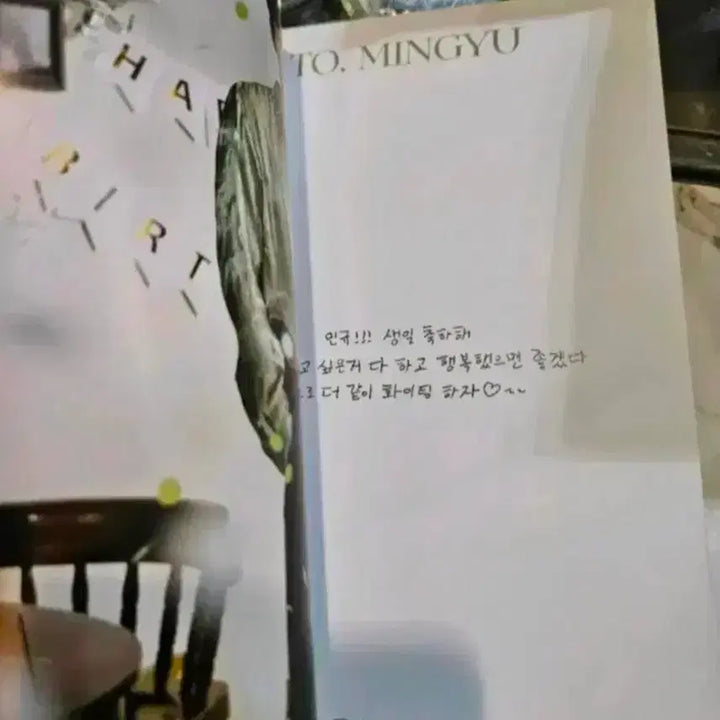 HA
BIRT
TO. MINGYU
민규!!! 생일 축하해
고 싶은거 다 하고 행복했으면 좋겠다
로 더 같이 화이팅 하자♡~~